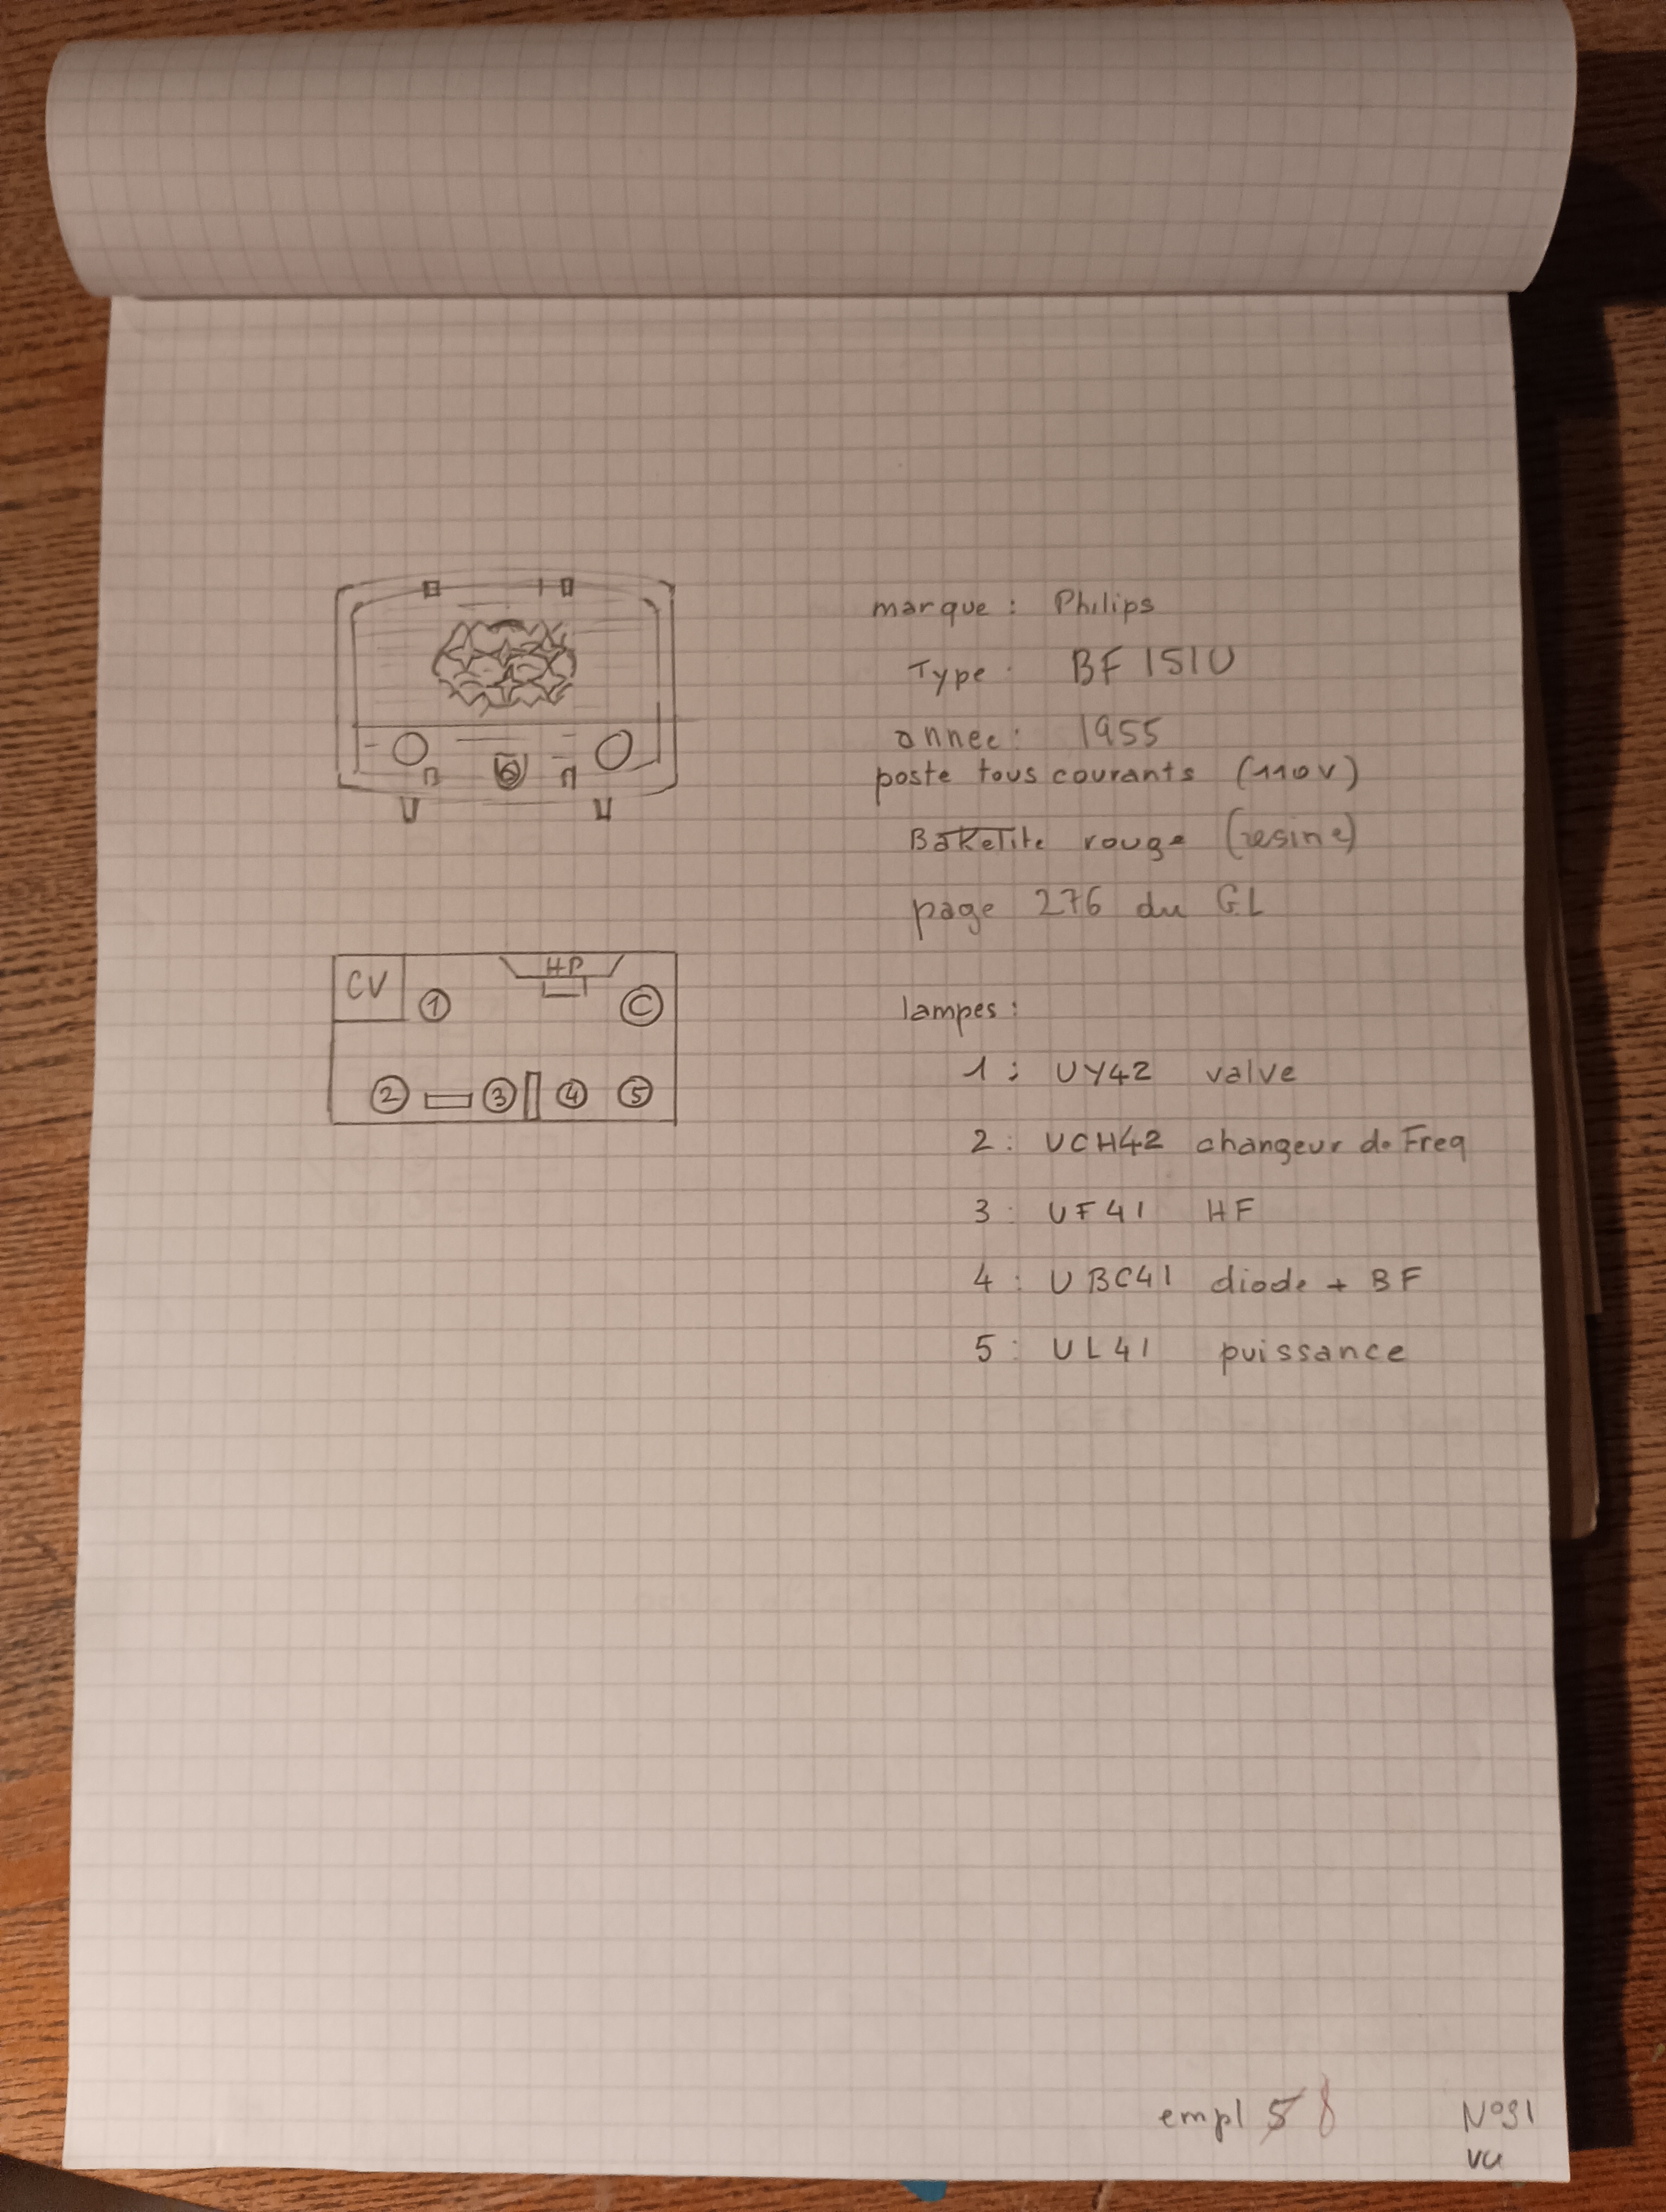 marque : Philips
Type : BF 151U
annee : 1955
poste tous courants (110v)
Bakelite rouge (resine)
page 276 du GL
CV
HP
1
C
2
3
4
5
lampes :
1 : UY42 valve
2 : UCH42 changeur de Freq
3 : UF41 HF
4 : UBC41 diode + BF
5 : UL41 puissance
empl 5 8
N°91
vu